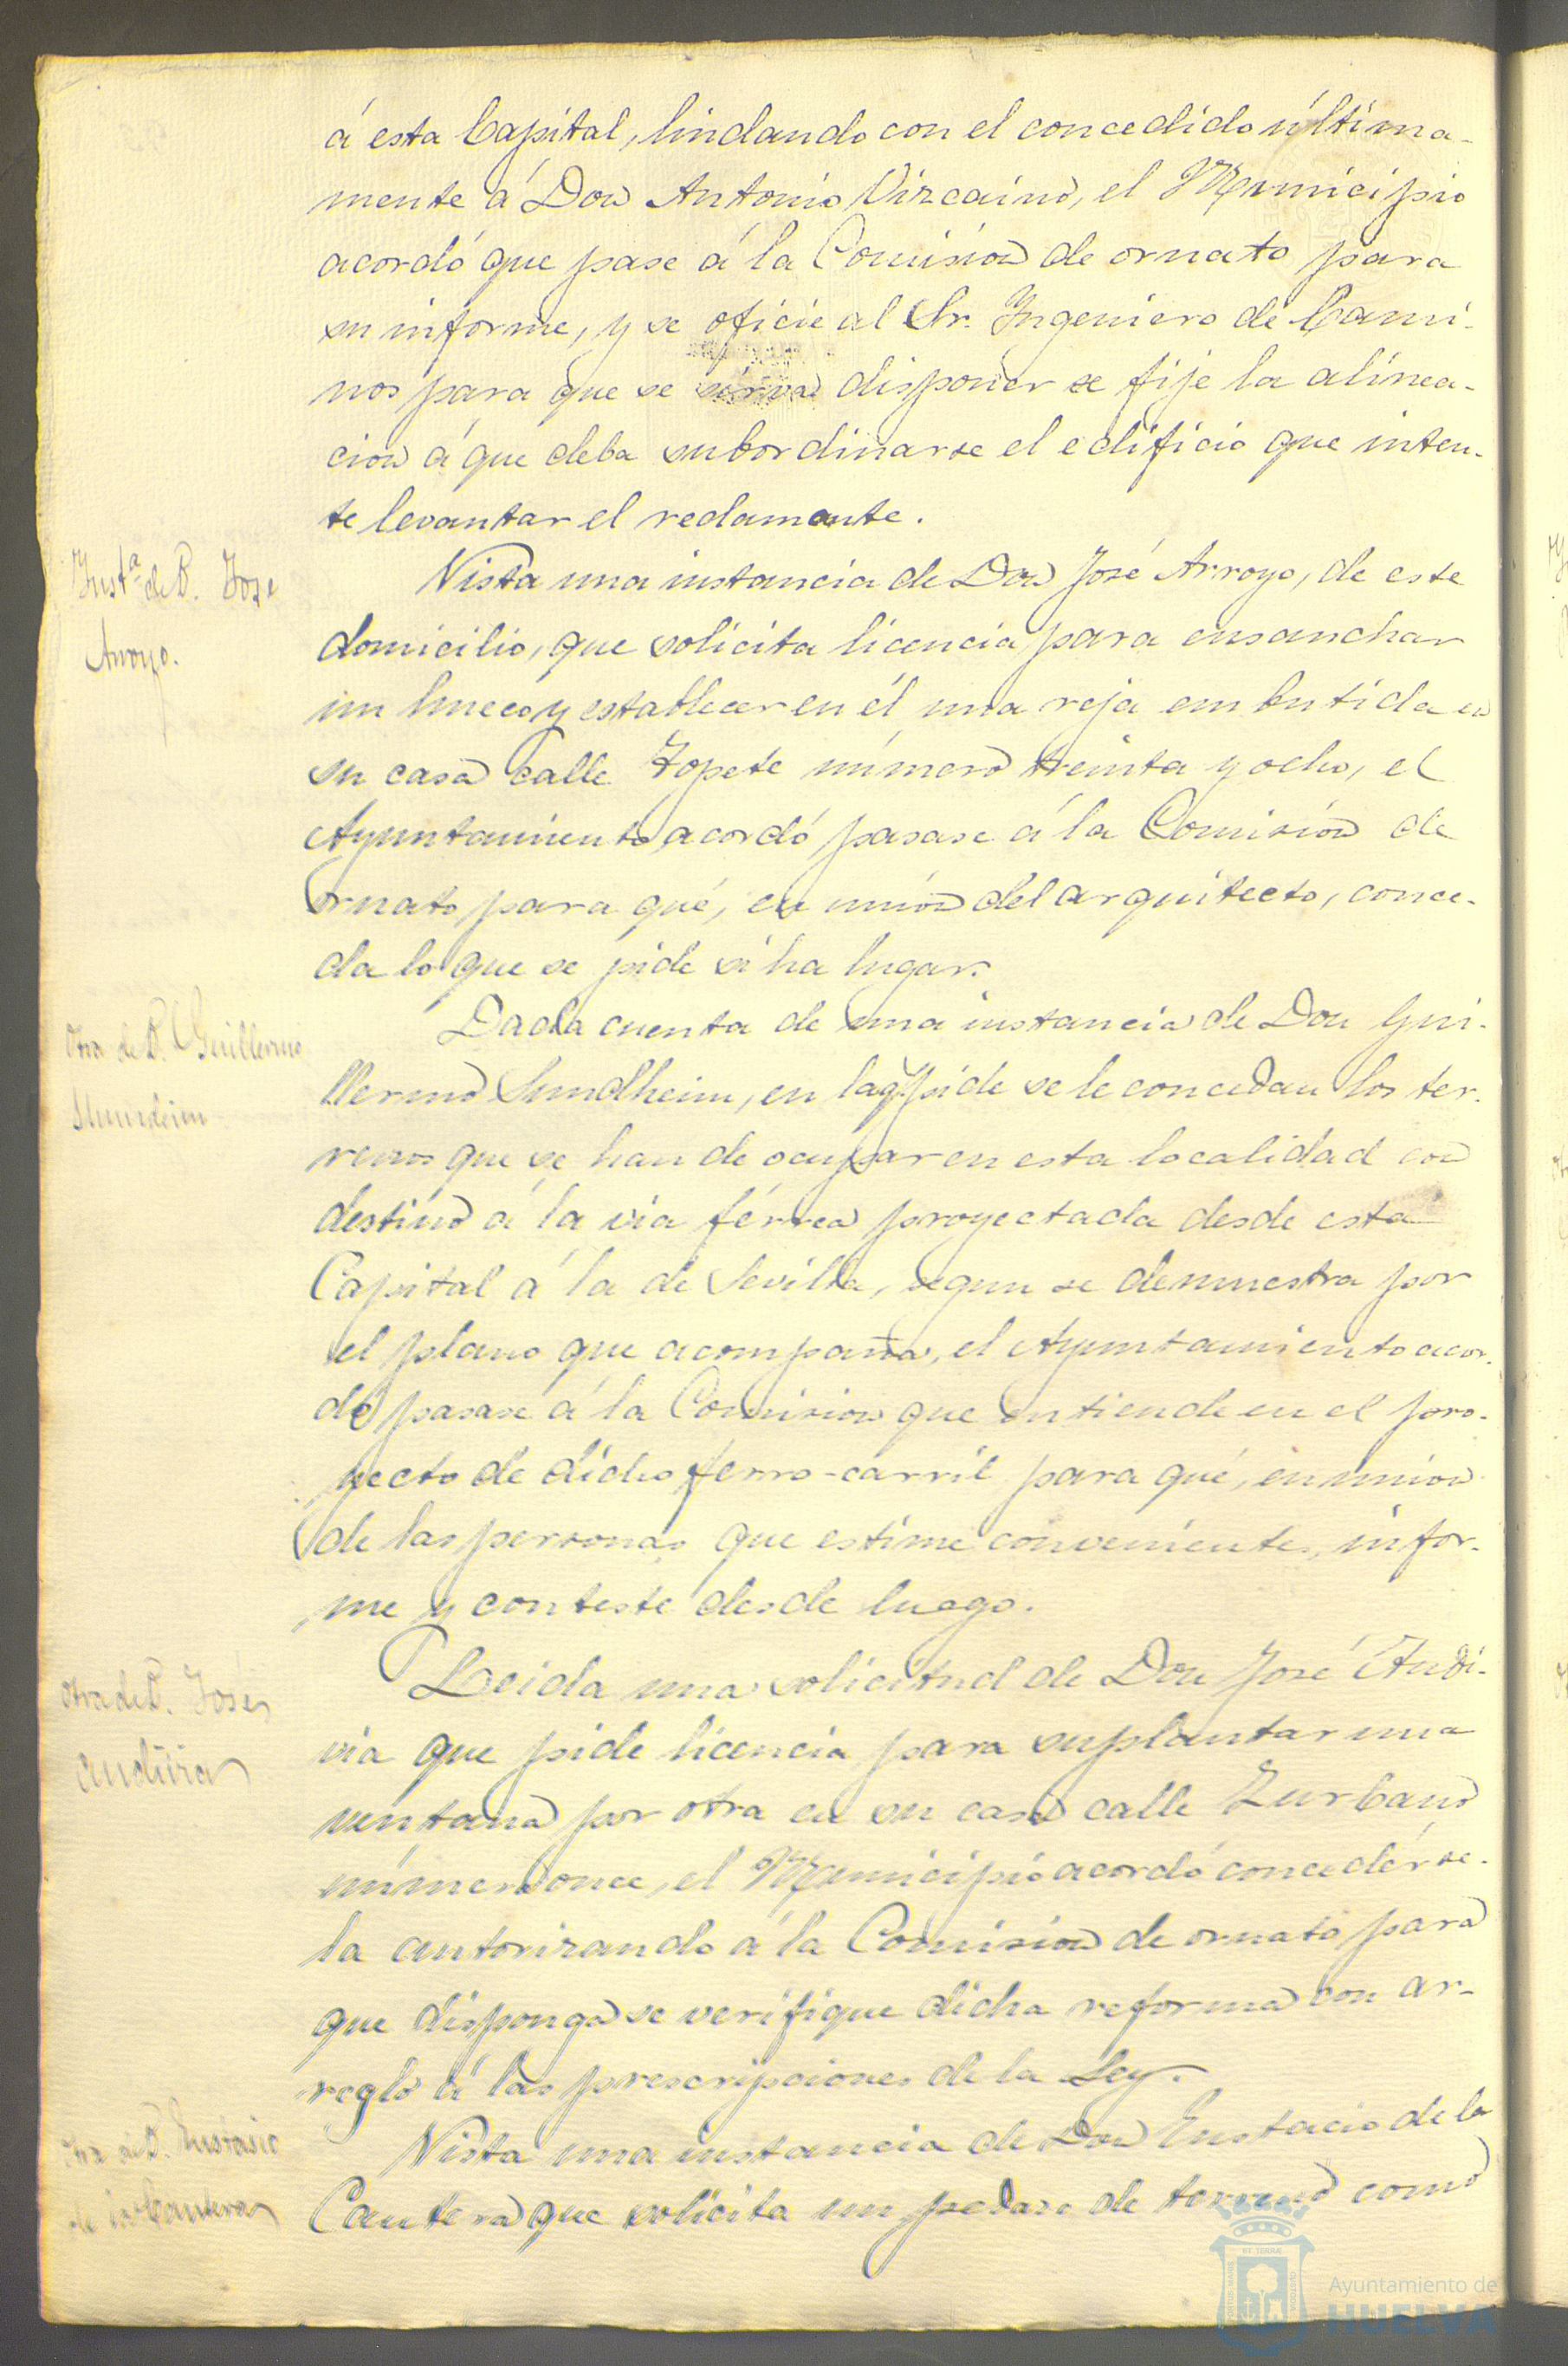 á esta Capital, lindando con el concedido última-
mente á Don Antonio Vizcaino, el Municipio
acordó que pase á la Comision de ornato para
su informe, y se oficie al Sr. Ingeniero de Cami-
nos para que se sirva disponer se fije la alinea-
cion á que deba subordinarse el edificio que inten-
te levantar el reclamante.
Inst.ª de D. Jose
Arroyo.
Vista una instancia de Don José Arroyo, de este
domicilio, que solicita licencia para ensanchar
un hueco y establecer en él una reja embutida en
su casa calle Topete número treinta y ocho, el
Ayuntamiento acordó pasase á la Comisión de
ornato para qué, en unión del arquitecto, conce-
da lo que se pide si ha lugar.
Otra de D. Guillermo
Slumdeim
Dada cuenta de una instancia de Don Gui-
llermo Sundheim, en la q. pide se le concedan los ter-
renos que se han de ocupar en esta localidad con
destino á la via férrea proyectada desde esta
Capital á la de Sevilla, segun se demuestra por
el plano que acompaña, el Ayuntamiento acor-
dó pasase á la Comision que entiende en el pro-
yecto de dicho ferro-carril para qué, en union
de las personas que estime convenientes, infor-
me y conteste desde luego.
Otra de D. José
Andivia
Leida una solicitud de Don José Andi-
via que pide licencia para suplantar una
ventana por otra en su casa calle Zurbano
número once, el Municipio acordó concedérse-
la autorizando á la Comision de ornato para
que disponga se verifique dicha reforma con ar-
reglo á las prescripciones de la Ley.
Otra de D. Eustasio
de la Cantera
Vista una instancia de Don Eustacio de la
Cantera que solicita un pedaso de terreno como
Ayuntamiento de
HUELVA